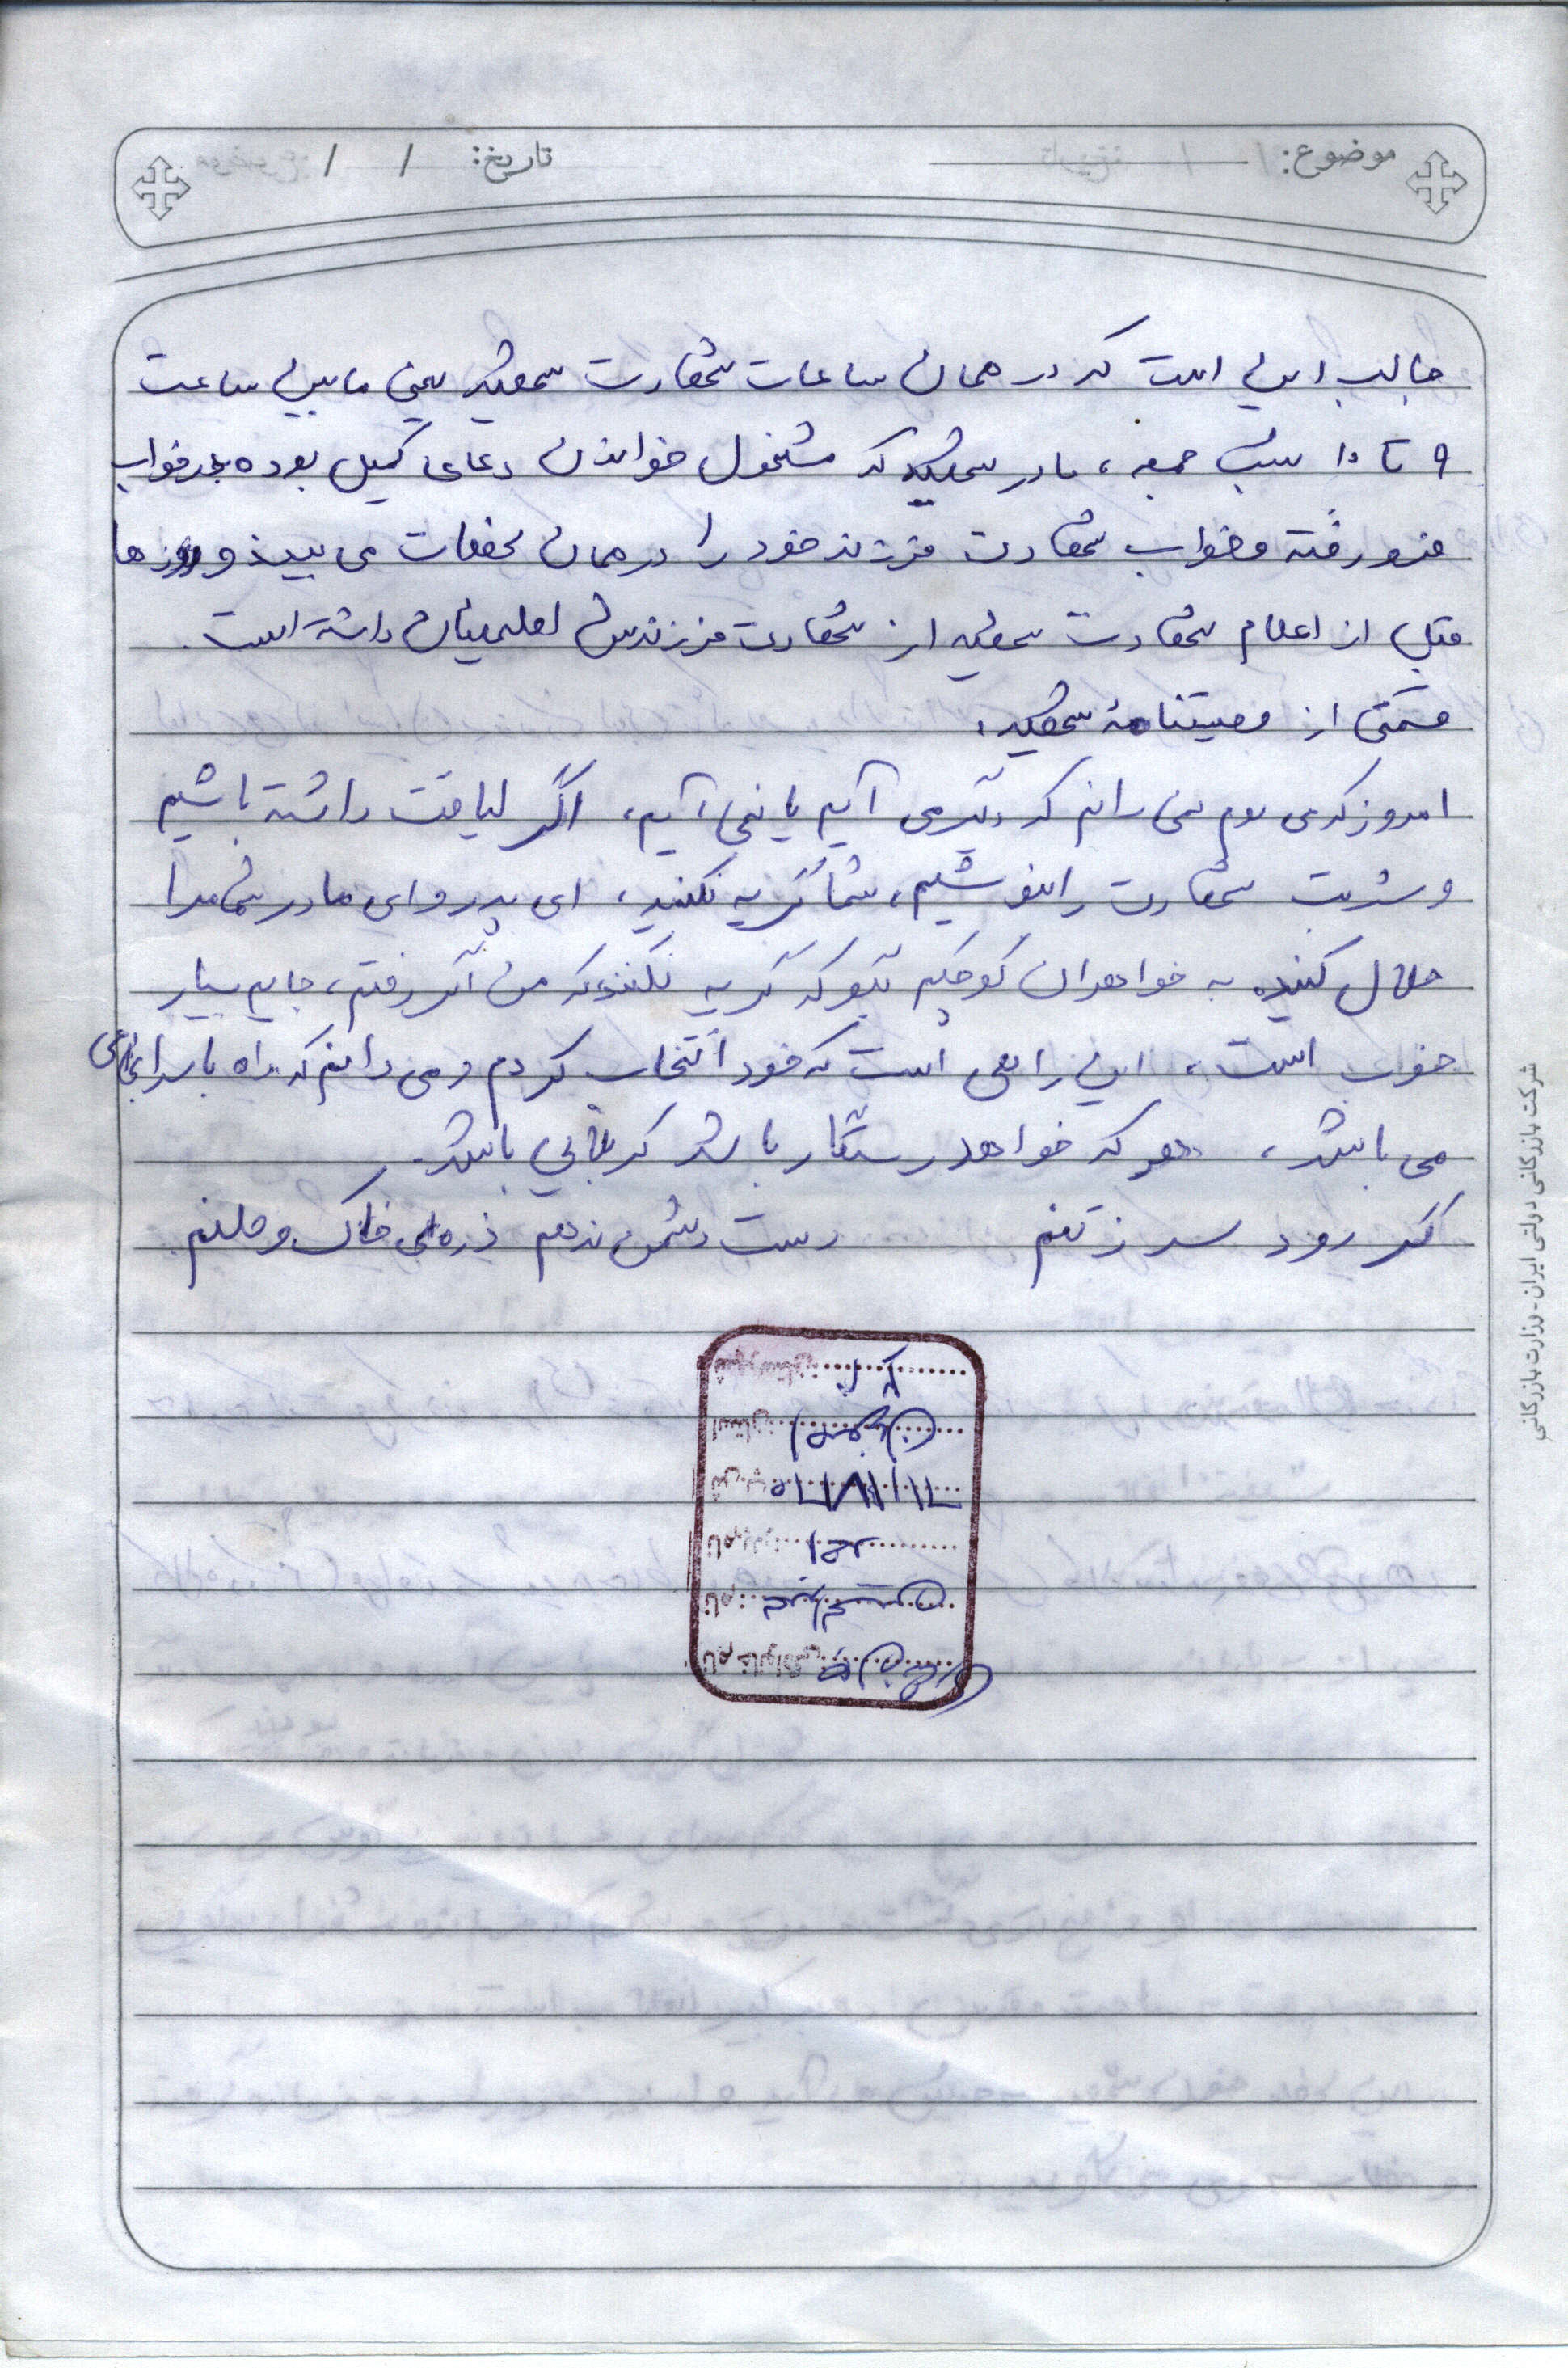 موضوع:
تاریخ: / /
جالب این است که در همان ساعات شهادت شهید یعنی مابین ساعت
۹ تا ۱۰ شب جمعه، مادر شهید که مشغول خواندن دعای کمیل بوده بخواب
فرو رفته و خواب شهادت فرزند خود را در همان لحظات می بیند و روزها
قبل از اعلام شهادت شهید از شهادت فرزندش اطمینان داشته است.
قسمتی از وصیتنامه شهید:
امروز که می روم نمی دانم که دیگر می آیم یا نمی آیم، اگر لیاقت داشته باشیم
و شربت شهادت را بنوشیم، شما گریه نکنید، ای پدر و ای مادر شما مرا
حلال کنید به خواهران کوچکم بگو که گریه نکنند که من اگر رفتم، جایم بسیار
خوب است، این راهی است که خود انتخاب کردم و می دانم که راه با سرانجامی
می باشد، هر که خواهد رستگار باشد کربلایی باشد.
گر رود سر ز تنم دست دشمن ندهم ذره ای خاک وطنم
شهرستان
استان
کد
نام پدر
نام
نام خانوادگی
شرکت بازرگانی دولتی ایران - وزارت بازرگانی